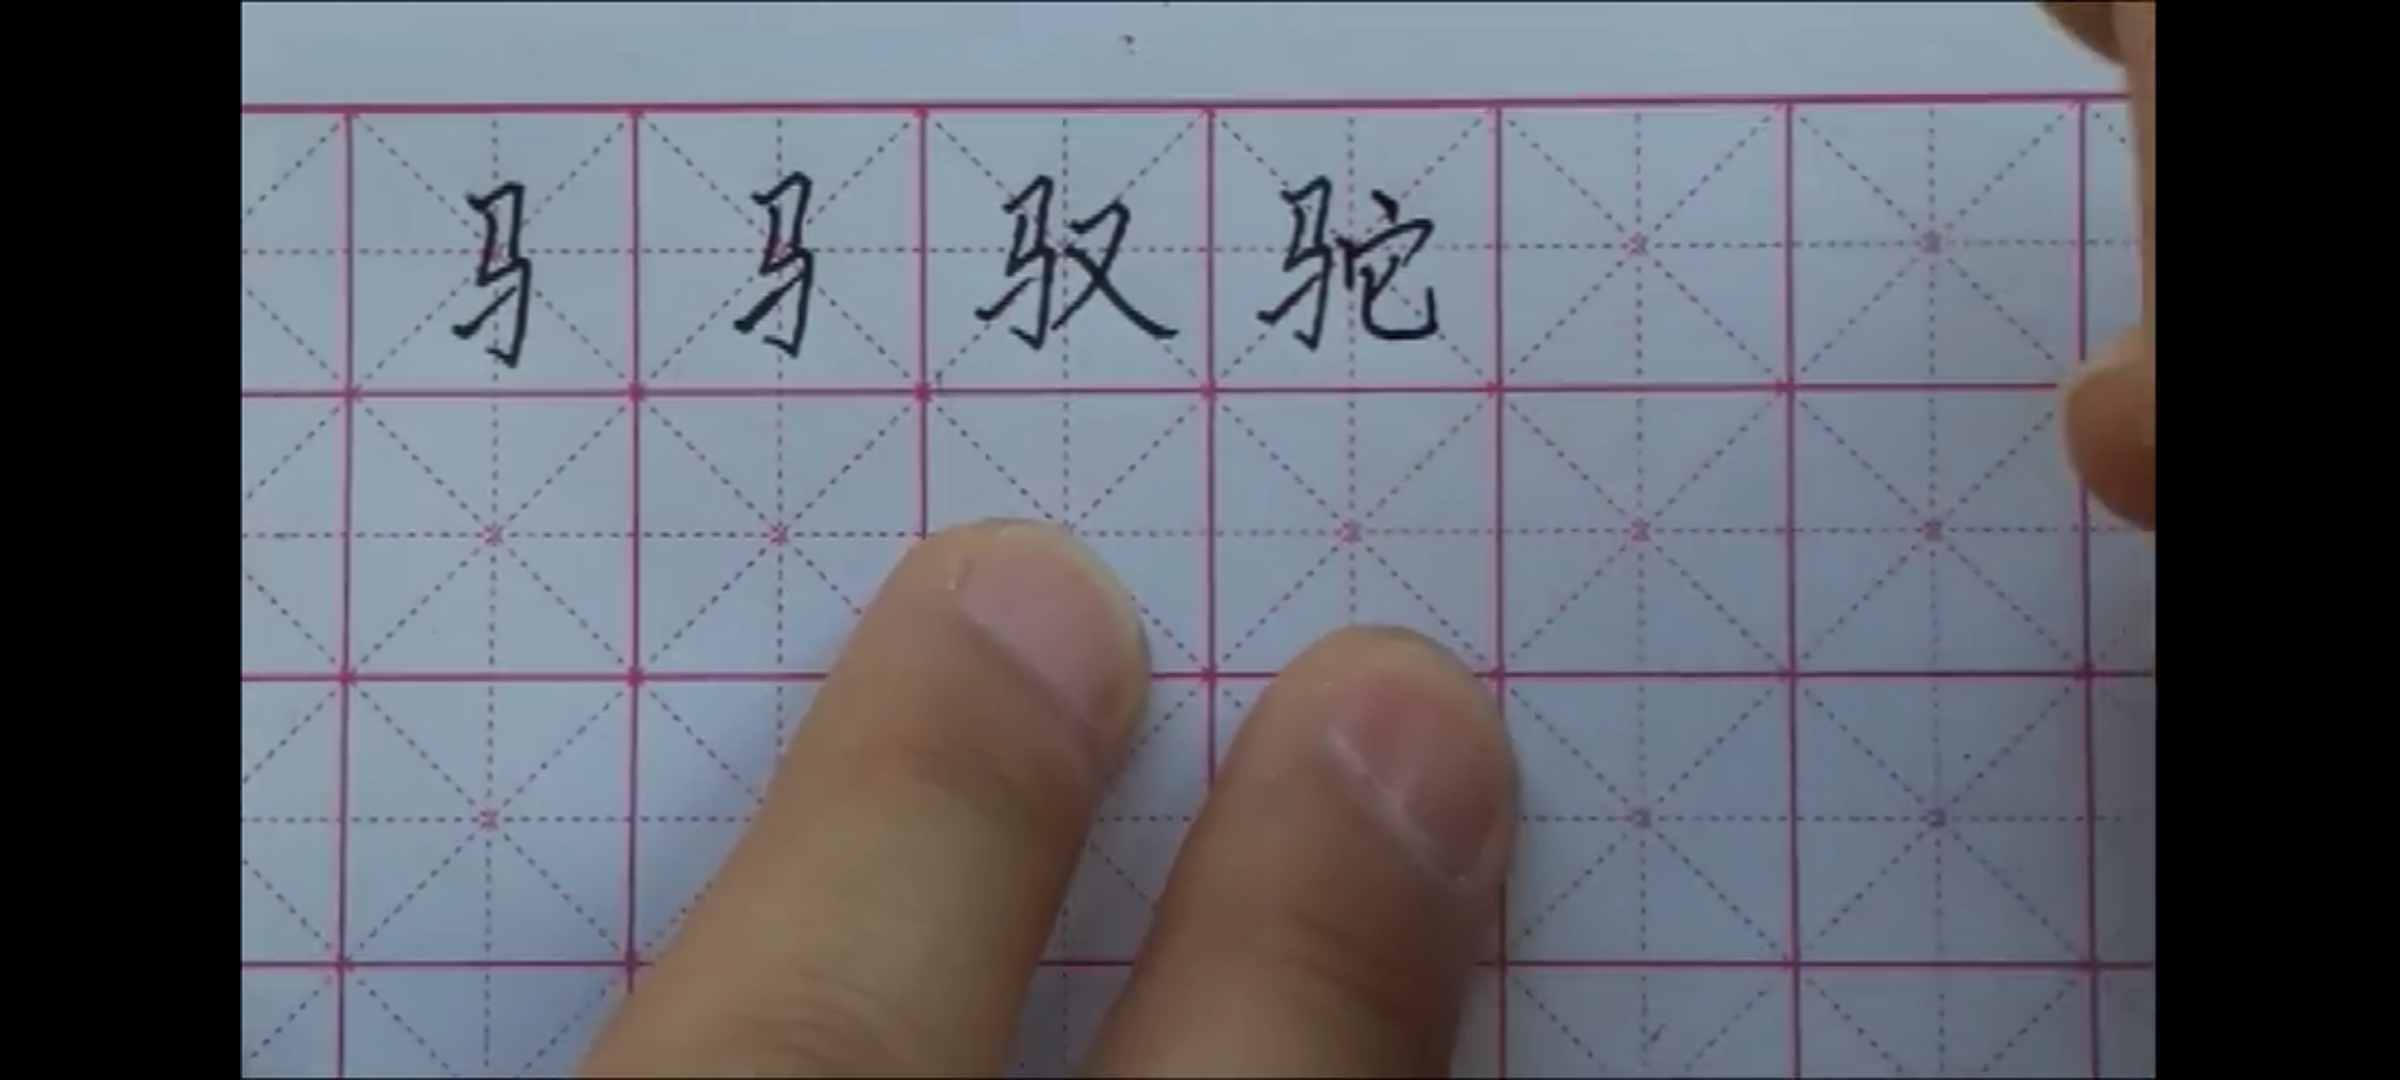 马 马 驭 驼